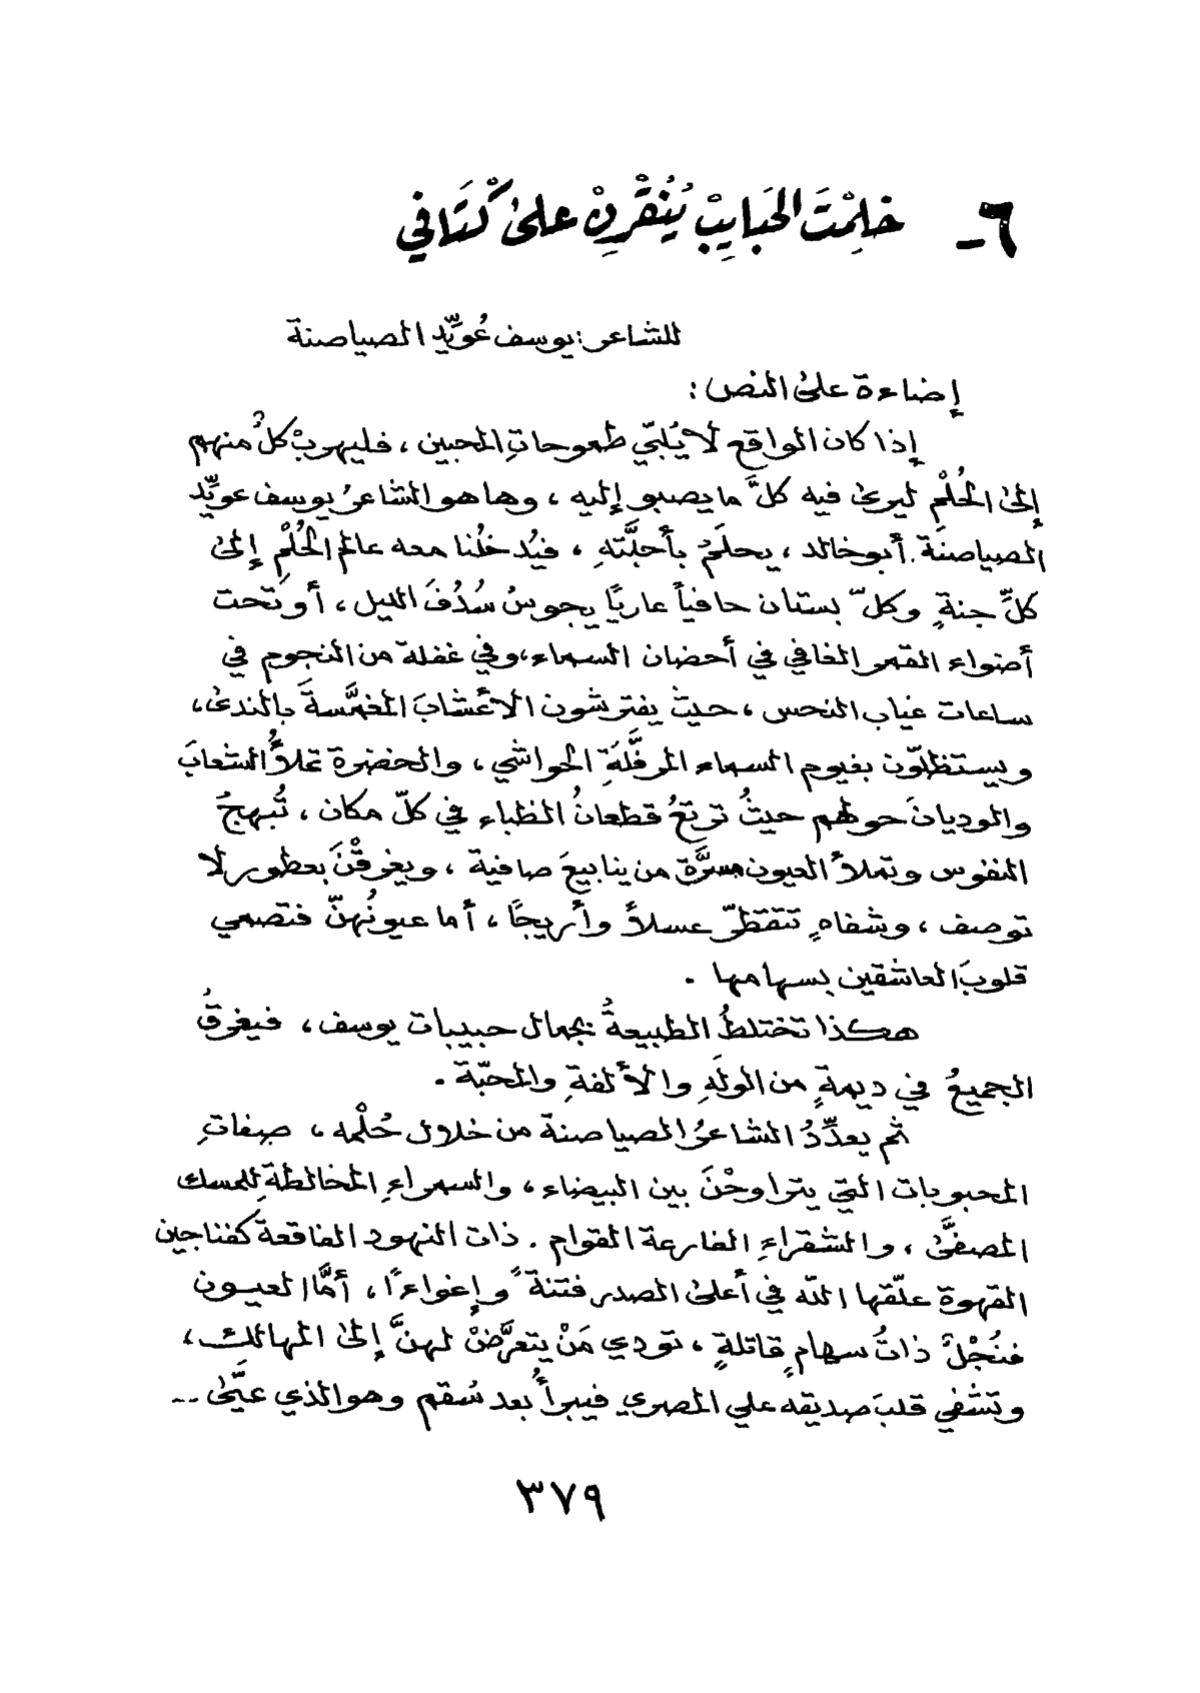 ٦- حْلِمْتَ الحَبايِبْ يُنُقْرِنْ على كْتَافي
للشاعر: يوسف عُويِّد الصياصنة
إضاءة على النص :
إذا كان الواقع لا يُلبّي طموحاتِ المحبين ، فليهربْ كلٌ منهم
إلى الحُلْم ليرى فيه كلَّ ما يصبو إليه ، وها هو الشاعرُ يوسف عويِّد
الصياصنَة . أبو خالد ، يحلَمُ بأحبَّتهِ ، فيُدخلُنا معه عالم الحُلْم إلى
كلِّ جنةٍ وكلّ بستان حافياً عاريًا يجوسُ سُدُفَ الليل ، أو تَحت
أضواء القمر الغافي في أحضان السماء ، وفي غفلة من النجوم في
ساعات غياب النحس ، حيثُ يفترشون الأعْشابَ المغمَّسةَ بالندى ،
ويستظلّون بغيوم السماء المرفَّلَةِ الحواشي ، والخضرة تملأُ الشعابَ
والوديانَ حولهم حيثُ ترتعُ قطعانُ الظباء في كلّ مكان ، تُبهجُ
النفوس وتملأ العيون مسرَّة من ينابيعَ صافية ، ويغرقْنَ بعطور لا
توصف ، وشفاهٍ تتقطّر عسلاً وأريجًا ، أما عيونُهنّ فتصمي
قلوبَ العاشقين بسهامها .
هكذا تختلطُ الطبيعةُ بجمال حبيبات يوسف ، فيغرقُ
الجميعُ في ديمةٍ من الولَهِ والألفةِ والمحبّة .
ثم يعدِّدُ الشاعرُ الصياصنة من خلال حُلْمه ، صفاتِ
المحبوبات التي يتراوحْنَ بين البيضاء ، والسمراءِ المخالطةِ للمسك
المصفَّى ، والشقراءِ الفارعة القوام . ذات النهود الفاقعة كفناجين
القهوة علّقها الله في أعلى الصدر فتنةً وإغواءًا ، أمَّا العيون
فنُجْلٌ ذاتُ سهامٍ قاتلةٍ ، تودي مَنْ يتعرَّضْ لهنَّ إلى المهالك ،
وتشفي قلبَ صديقه علي المصري فيبرأُ بعد سُقم وهو الذي عيَّى ..
٣٧٩